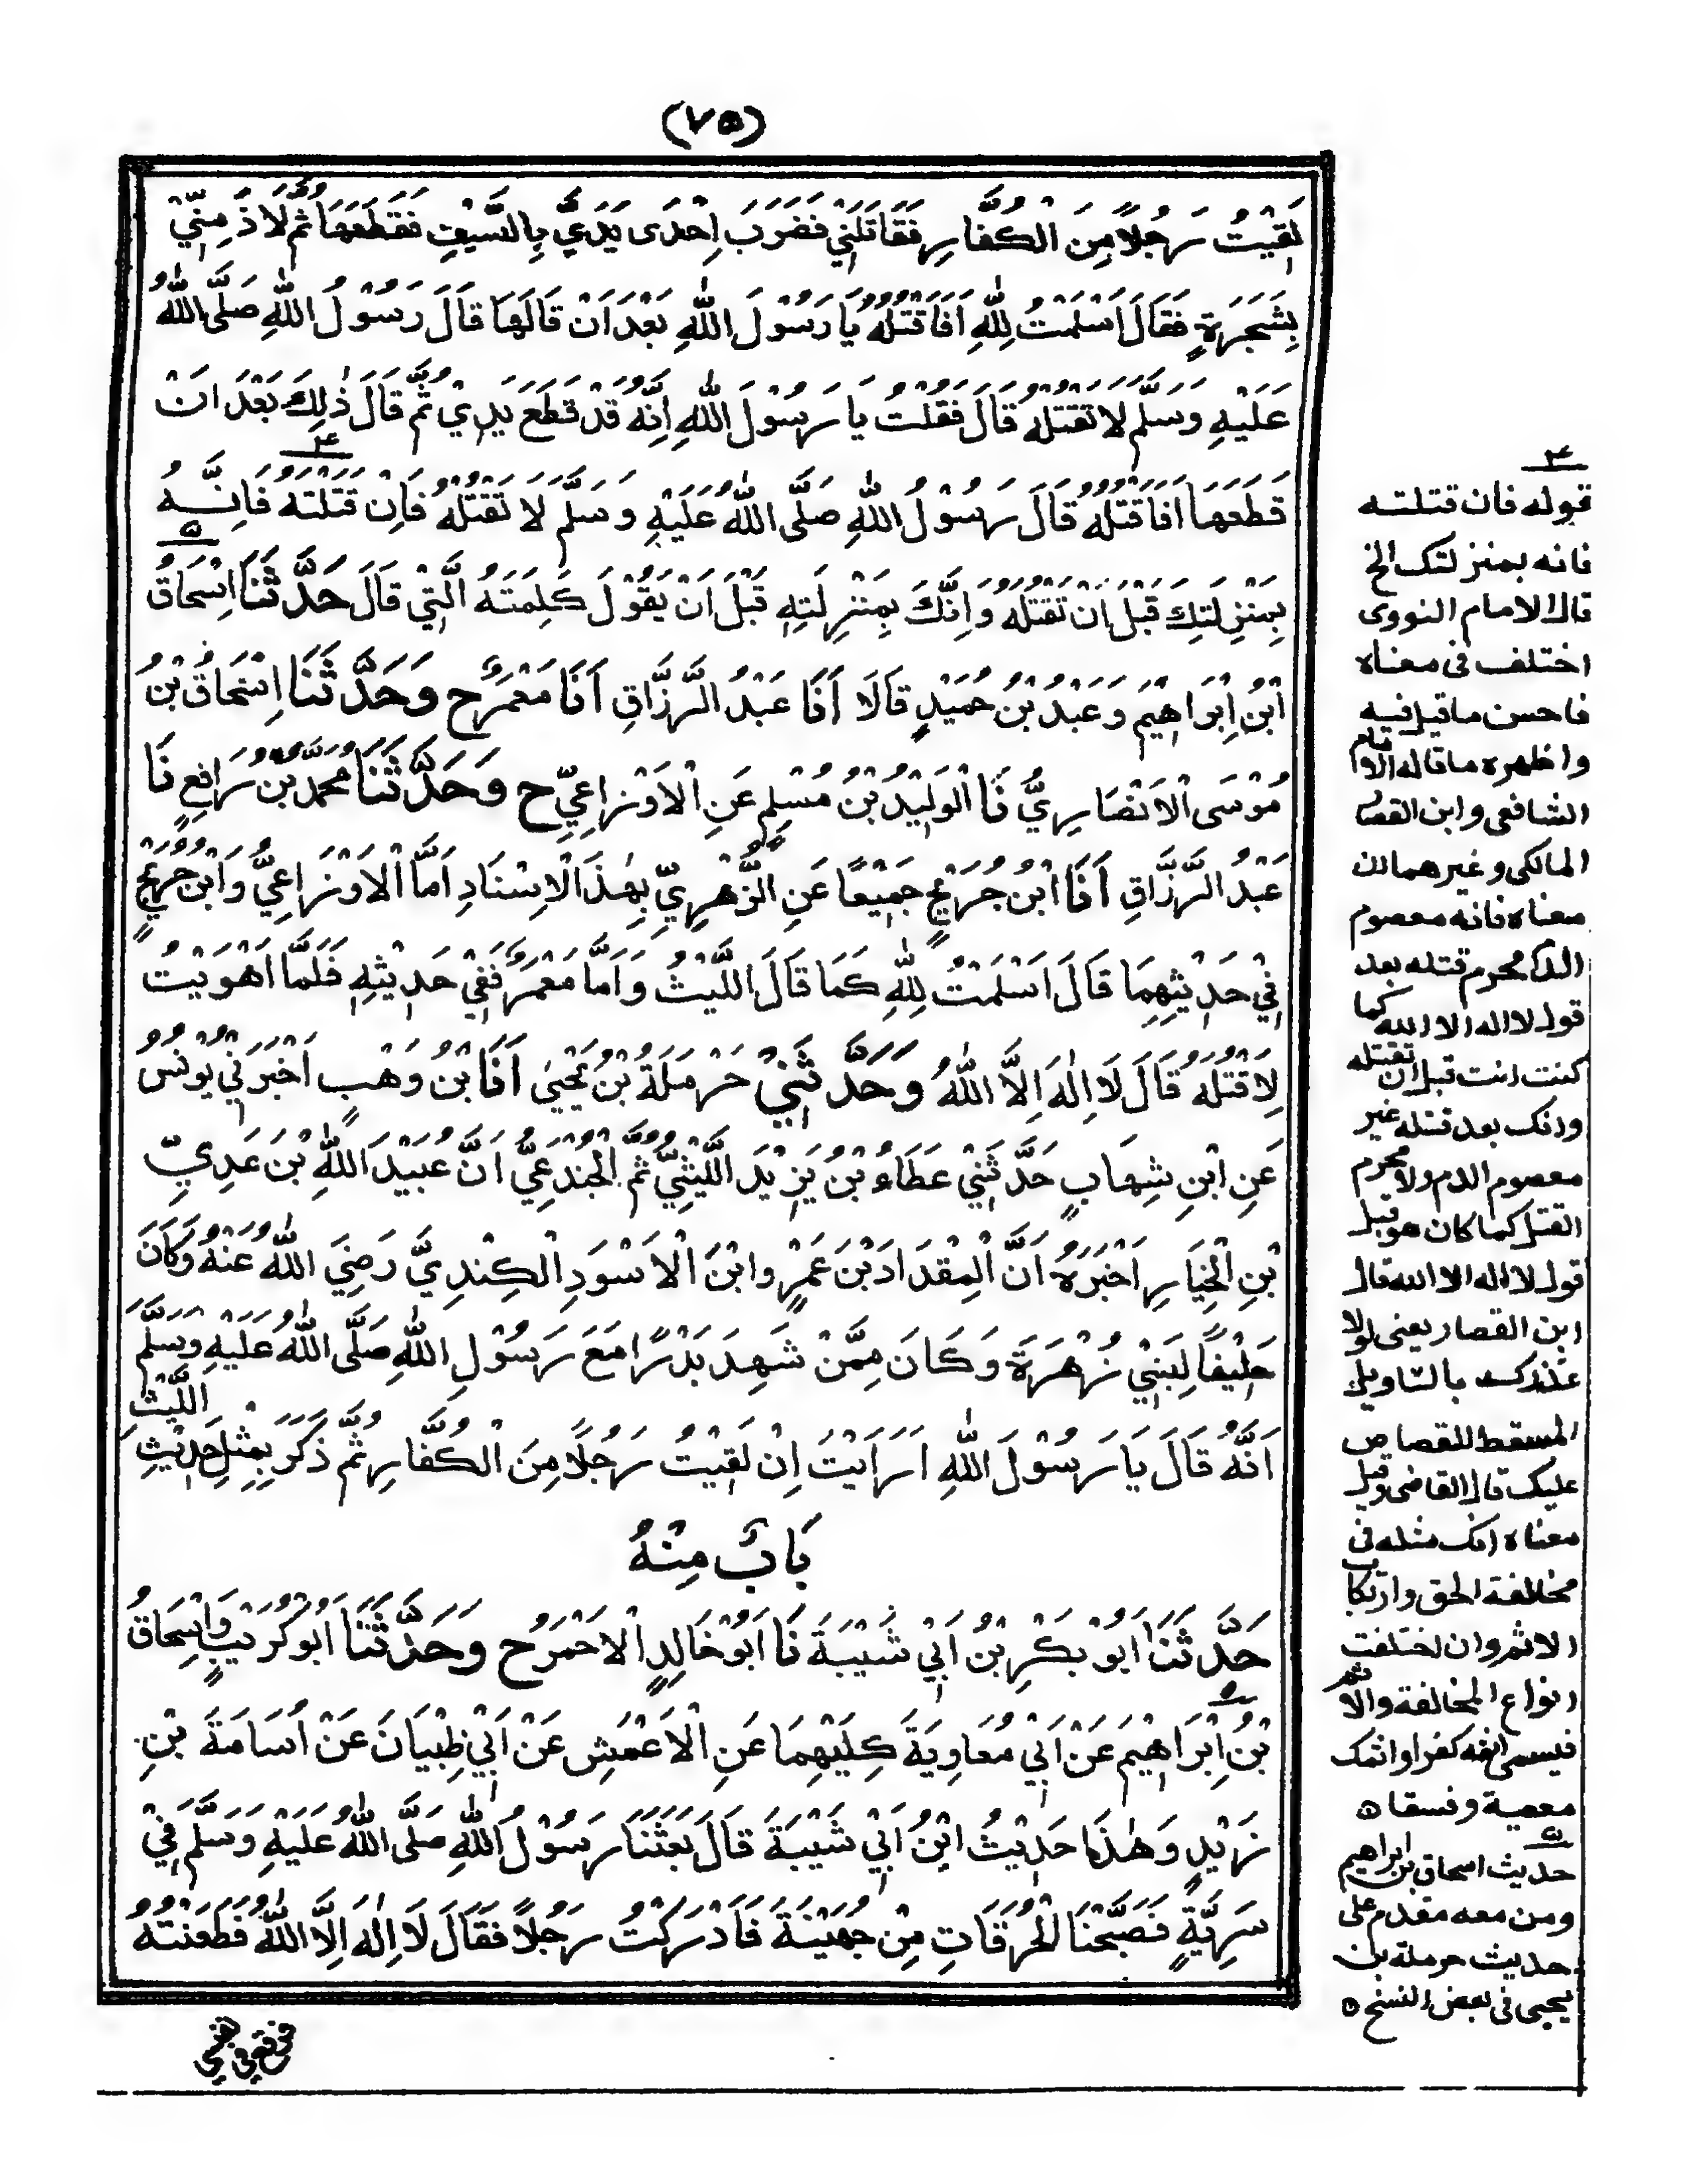 (٧٥)
لَقِيْتُ رَجُلًا مِنَ الْكُفَّارِ فَقَاتَلَنِيْ فَضَرَبَ اِحْدَى يَدَيَّ بِالسَّيْفِ فَقَطَعَهَا ثُمَّ لَاذَ مِنِّيْ
بِشَجَرَةٍ فَقَالَ اَسْلَمْتُ لِلّٰهِ اَفَاَقْتُلُهُ يَا رَسُوْلَ اللّٰهِ بَعْدَ اَنْ قَالَهَا قَالَ رَسُوْلُ اللّٰهِ صَلَّى اللّٰهُ
عَلَيْهِ وَسَلَّمَ لَا تَقْتُلْهُ قَالَ فَقُلْتُ يَا رَسُوْلَ اللّٰهِ اِنَّهُ قَدْ قَطَعَ يَدِيْ ثُمَّ قَالَ ذٰلِكَ بَعْدَ اَنْ
قَطَعَهَا اَفَاَقْتُلُهُ قَالَ رَسُوْلُ اللّٰهِ صَلَّى اللّٰهُ عَلَيْهِ وَسَلَّمَ لَا تَقْتُلْهُ فَاِنْ قَتَلْتَهُ فَاِنَّهُ
بِمَنْزِلَتِكَ قَبْلَ اَنْ تَقْتُلَهُ وَاِنَّكَ بِمَنْزِلَتِهِ قَبْلَ اَنْ يَقُوْلَ كَلِمَتَهُ الَّتِيْ قَالَ حَدَّثَنَا اِسْحَاقُ
ابْنُ اِبْرَاهِيْمَ وَعَبْدُ بْنُ حُمَيْدٍ قَالَا اَنَا عَبْدُ الرَّزَّاقِ اَنَا مَعْمَرٌ ح وَحَدَّثَنَا اِسْحَاقُ بْنُ
مُوْسَى الْاَنْصَارِيُّ نَا الْوَلِيْدُ بْنُ مُسْلِمٍ عَنِ الْاَوْزَاعِيِّ ح وَحَدَّثَنَا مُحَمَّدُ بْنُ رَافِعٍ نَا
عَبْدُ الرَّزَّاقِ اَنَا ابْنُ جُرَيْجٍ جَمِيْعًا عَنِ الزُّهْرِيِّ بِهٰذَا الْاِسْنَادِ اَمَّا الْاَوْزَاعِيُّ وَابْنُ جُرَيْجٍ
فِيْ حَدِيْثِهِمَا قَالَ اَسْلَمْتُ لِلّٰهِ كَمَا قَالَ اللَّيْثُ وَاَمَّا مَعْمَرٌ فَفِيْ حَدِيْثِهِ فَلَمَّا اَهْوَيْتُ
لِاَقْتُلَهُ قَالَ لَا اِلٰهَ اِلَّا اللّٰهُ وَحَدَّثَنِيْ حَرْمَلَةُ بْنُ يَحْيٰى اَنَا بْنُ وَهْبٍ اَخْبَرَنِيْ يُوْنُسُ
عَنِ ابْنِ شِهَابٍ حَدَّثَنِيْ عَطَاءُ بْنُ يَزِيْدَ اللَّيْثِيُّ ثُمَّ الْجُنْدَعِيُّ اَنَّ عُبَيْدَ اللّٰهِ بْنَ عَدِيِّ
بْنِ الْخِيَارِ اَخْبَرَهُ اَنَّ الْمِقْدَادَ بْنَ عَمْرٍو ابْنَ الْاَسْوَدِ الْكِنْدِيَّ رَضِيَ اللّٰهُ عَنْهُ وَكَانَ
حَلِيْفًا لِبَنِيْ زُهْرَةَ وَكَانَ مِمَّنْ شَهِدَ بَدْرًا مَعَ رَسُوْلِ اللّٰهِ صَلَّى اللّٰهُ عَلَيْهِ وَسَلَّمَ
اَنَّهُ قَالَ يَا رَسُوْلَ اللّٰهِ اَرَاَيْتَ اِنْ لَقِيْتُ رَجُلًا مِنَ الْكُفَّارِ ثُمَّ ذَكَرَ بِمِثْلِ حَدِيْثِ اللَّيْثِ
بَابٌ مِنْهُ
حَدَّثَنَا اَبُوْ بَكْرِ بْنُ اَبِيْ شَيْبَةَ نَا اَبُوْ خَالِدٍ الْاَحْمَرُ ح وَحَدَّثَنَا اَبُوْ كُرَيْبٍ وَاِسْحَاقُ
بْنُ اِبْرَاهِيْمَ عَنْ اَبِيْ مُعَاوِيَةَ كِلَيْهِمَا عَنِ الْاَعْمَشِ عَنْ اَبِيْ ظِبْيَانَ عَنْ اُسَامَةَ بْنِ
زَيْدٍ وَهٰذَا حَدِيْثُ ابْنُ اَبِيْ شَيْبَةَ قَالَ بَعَثَنَا رَسُوْلُ اللّٰهِ صَلَّى اللّٰهُ عَلَيْهِ وَسَلَّمَ فِيْ
سَرِيَّةٍ فَصَبَّحْنَا الْحُرَقَاتِ مِنْ جُهَيْنَةَ فَاَدْرَكْتُ رَجُلًا فَقَالَ لَا اِلٰهَ اِلَّا اللّٰهُ فَطَعَنْتُهُ
٤
قوله فان قتلته
فانه بمنزلتك الخ
قال الامام النووى
اختلف فى معناه
فاحسن ما قيل فيه
واظهره ما قاله الامام
الشافعى وابن القصار
المالكى وغيرهما ان
معناه فانه معصوم
الدم محرم قتله بعد
قول لا اله الا الله كما
كنت انت قبل ان تقتله
وانك بعد قتله غير
معصوم الدم ولا محرم
القتل كما كان هو قبل
قول لا اله الا الله قال
ابن القصار يعنى لولا
عذرك بالتاويل
المسقط للقصاص
عليك قال القاضى وقيل
معناه انك مثله فى
مخالفة الحق وارتكاب
الاثم وان اختلفت
انواع المخالفة والاثم
فيسمى اثمه كفرا واثمك
معصية وفسقا ه
٥
حديث اسحاق بن ابراهيم
ومن معه مقدم على
حديث حرملة بن
يحيى فى بعض النسخ ه